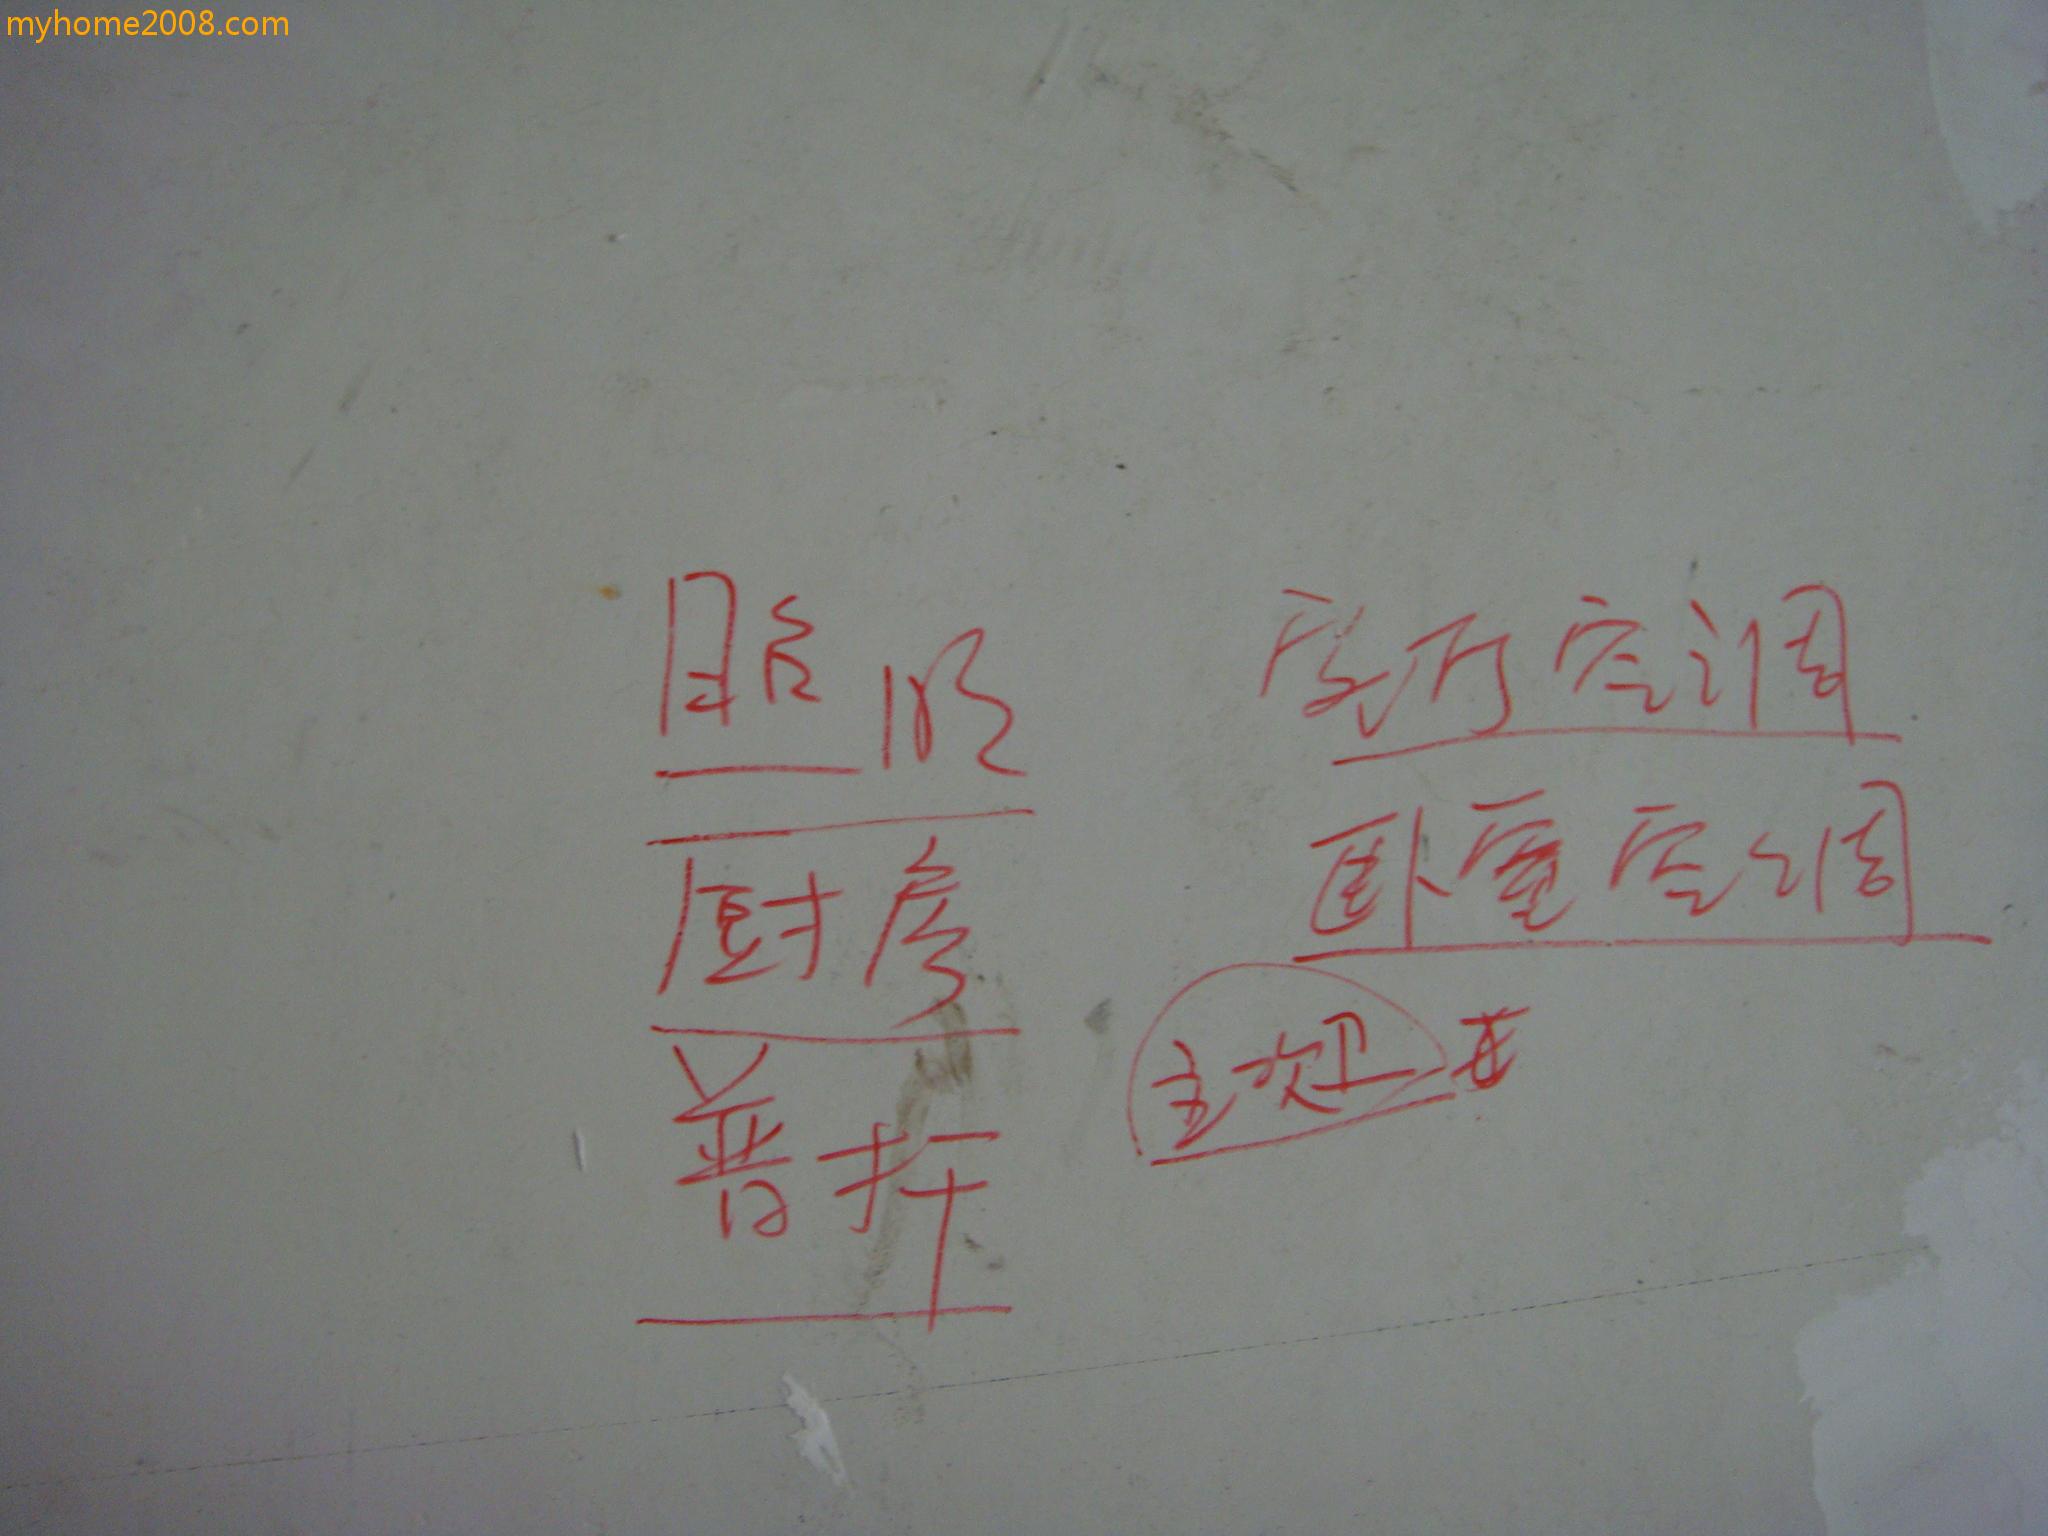 myhome2008.com
照明
厨房
普插
客厅空调
卧室空调
主次卫